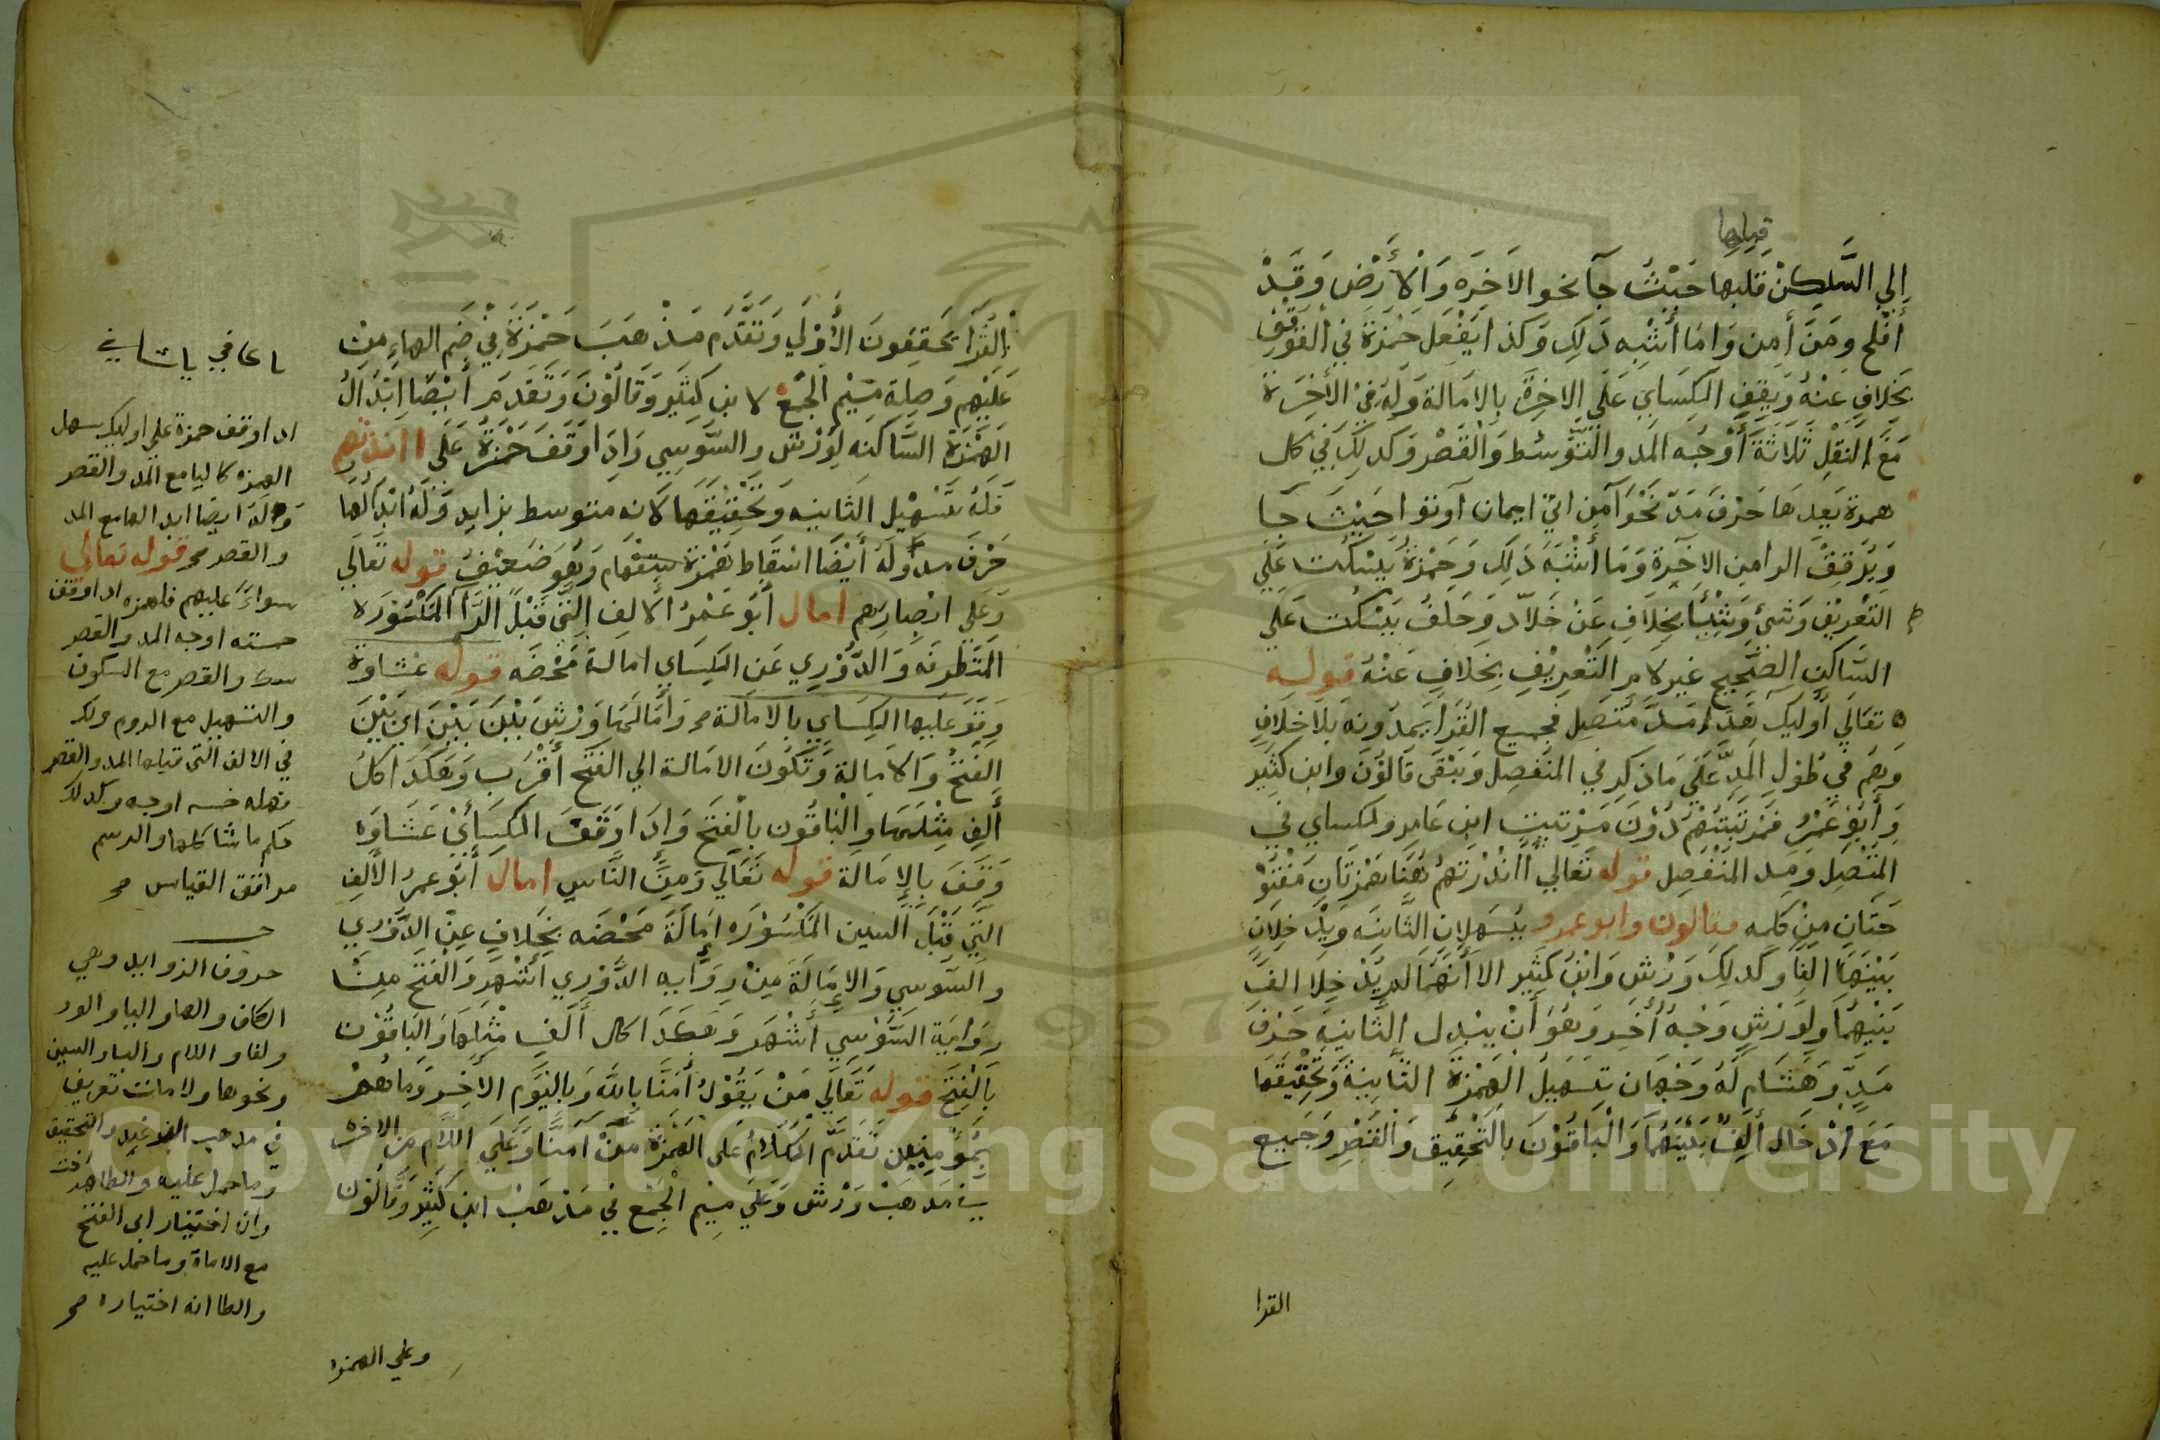 قبلها
إلي السَّكِن قلبها حَيْثُ جآ نحو الاخِرَه وَالأَرْض وَقَدْ
أفْلح ومَنْ أمِن وَامَا أشْبه ذَلِك وَكذا يَفْعَل حَمْزَة في الْوَقفِ
بِخلافٍ عَنْهُ وَيَقِف الكِسَاي عَلَي الاخِرة بالامَالة وَلِوَرْش الأخِرَة
مَعَ النَقْل ثَلاثَة أَوْجُه المَد والتَّوَسُط وَالْقَصْر وَكذلك في كل
همزة بَعِدهَا حَرْف مَدّ نَحْوَ آمِن اتيَ ايمان أوتوا حَيْثُ جَا
وَيُرَقِّقْ الرا من الاخِرَة وَمَا أشْبَه ذَلِكَ وَحَمْزَة يَسْكُت عَلَي
التَعْرِيْف وَشَيْءٍ وَشَيْئًا بخِلَافِ عَنْ خَلاّد وَخَلَفُ يَسْكت عَلي
السَّاكن الصَّحِيح غير لام التَعْرِيْفِ بِخلافِ عَنْهُ قوله
تعَالي أُوليك هَذا مَدَّ مُتصِل فجميع القُرَا يَمدّونه بلا خلافٍ
وَهم في طُولِ المَدِّ عَلَي مَا ذكر في المنْفصِل وَيَبْقَي قَالوُن وابن كثير
وَأبُوْ عَمْرٍ فمَرتَبَتُهُمْ دُوْنَ مَرْتَبَتِ ابن عَامِر ولكساي في
المتصِل ومَد المنْفَصِل قوله تعَالي أأنذرْتهُم هُنَا هَمْزتَانِ مَفْتُوْ
حَتَانِ مِنْ كلمه فقالون وابو عمرو يُسهلانِ الثانِيَه وَيدْخِلَانِ
بَيْنَهُمَا الفا وكَذلِكَ وَرْش وَابْنُ كَثير الا أنهُمَا لم يُدْخِلا الفَ
بَيْنِهُمَا وَلِوَرْش وَجْهُ أُخَر وَهُوَ أَنْ يبْدل الثَانِيَة حَرْفَ
مَدٍّ وَهِشَام لَهُ وَجْهان تسْهيل الهمْزة الثَّانِيَةِ وَتَحْقِيْقَها
مَعَ إدْخَال ألِفٍ بَيْنَهُمَا وَالْبَاقُوْنَ بالتَحْقِيْق وَالْقَصْرِ وَجَميع
القرا
القُرَا يحَققون الأُوْلَي وَتَقَدَّم مَذْهبَ حَمْزَة في ضَم الهاءِ مِنْ
عَلَيْهم وَصِلِة مِيْم الجَمْع لابن كثير وَقالُوْن وَتَقَدم أَيْضًا ابْدَالُ
الهمْزَة السَّاكنه لِوَرْش والسُّوسِي وَاذا وَقَفَ حَمْزَة عَلَي أأنذرتهم
فَلهُ تَسْهِيْل الثانيه وَتَحْقِيْقَهَا لانه متوسط بزايد وَلهُ ابْدَالُهَا
حَرْف مد وَلَهُ أَيْضًا اسْقَاط هَمْزة ستفْهام وَهُوَ ضعِيْفُ قوله تَعَالَي
وَعَلي ابْصارِهِم امال أبُو عَمْرُ الألِف التَي قَبْلَ الرَّا المَكْسُوْرَة
المتطرفَه وَالدُّوْرِي عَن الكِسَاي امالة مَحْضَه قوله غشاوة
وَقفَ عَليها الكِسَاي بالامَالَة وَأمَالَهَا وَرْش بَيْنَ بَيْنَ اي بَيْنَ
الفَتْح وَالامالة وَتَكُوْن الامَالة الي الفَتح أقرَب وَهَكذا كلُ
أَلِفٍ مِثْلَهَا والْبَاقُون بالفَتْح وَاذَا وَقَفَ الكِسَاي عَلَي غشَاوَه
وَقَفَ بالإمَالَة قوله تَعَالَي وَمِنَ النَّاسِ امال أَبُو عمرُ الألِفِ
التَي قَبْلَ السِّين المَكْسُوْرَه إمَالَةً مَحْضَه بِخلافٍ عنْ الدَّوْرِي
والسُّوسي وَالإمَالَة مِنْ رِوَايه الدُّوْرِي أَشْهَر وَالْفَتْح مِنْ
رِوَاية السُّوسِي أَشْهَر وَهَكذَا كل أَلف مِثْلهَا وَالبَاقُوْن
بالْفَتح قوله تَعَالَي مَنْ يَقُوْلُ أمَنَّا باللَّه وَباليَوْم الأخِر وَمَا هُمْ
بمؤمِنِيْن تَقدَّم الكَلَامُ عَلَي الْهَمْزَة مِنْ آمَنَّا وَعَلَي اللَّام من الاخِرْ
في مَذهَبْ وَرْش وَعَلَي مِيْم الجَمْعِ في مَذهَبْ ابن كَثِيْر وَقَالُوْن
وعلي الهمزه
يا كافي يا شافي
اذا وقف حمزة علي اوليك سهل
الهمزه كاليا مع المد والقصر
وله ايضا ابدالها مع المد
والقصر صح قوله تعالي
سواءٌ عليهم فلهمزه اذا وقف
خمسه اوجه المد والقصر
والقصر مع السكون
والتسهيل مع الروم
في الالف التي قبلها المد والقصر
فهذه خمسه اوجه وكذلك
حكم ما شاكلها والرسم
موافق القياس صح
حروف الزوايد وهي
الكاف والها واليا والو
ولفا و اللام والبا والسين
ونحوها ولامات تعريف
في مذهب والتحقيق
وان اختيار ابي الفتح
مع الامالة وما حمل عليه
اختياره صح
Copyright © King Saud University
1957